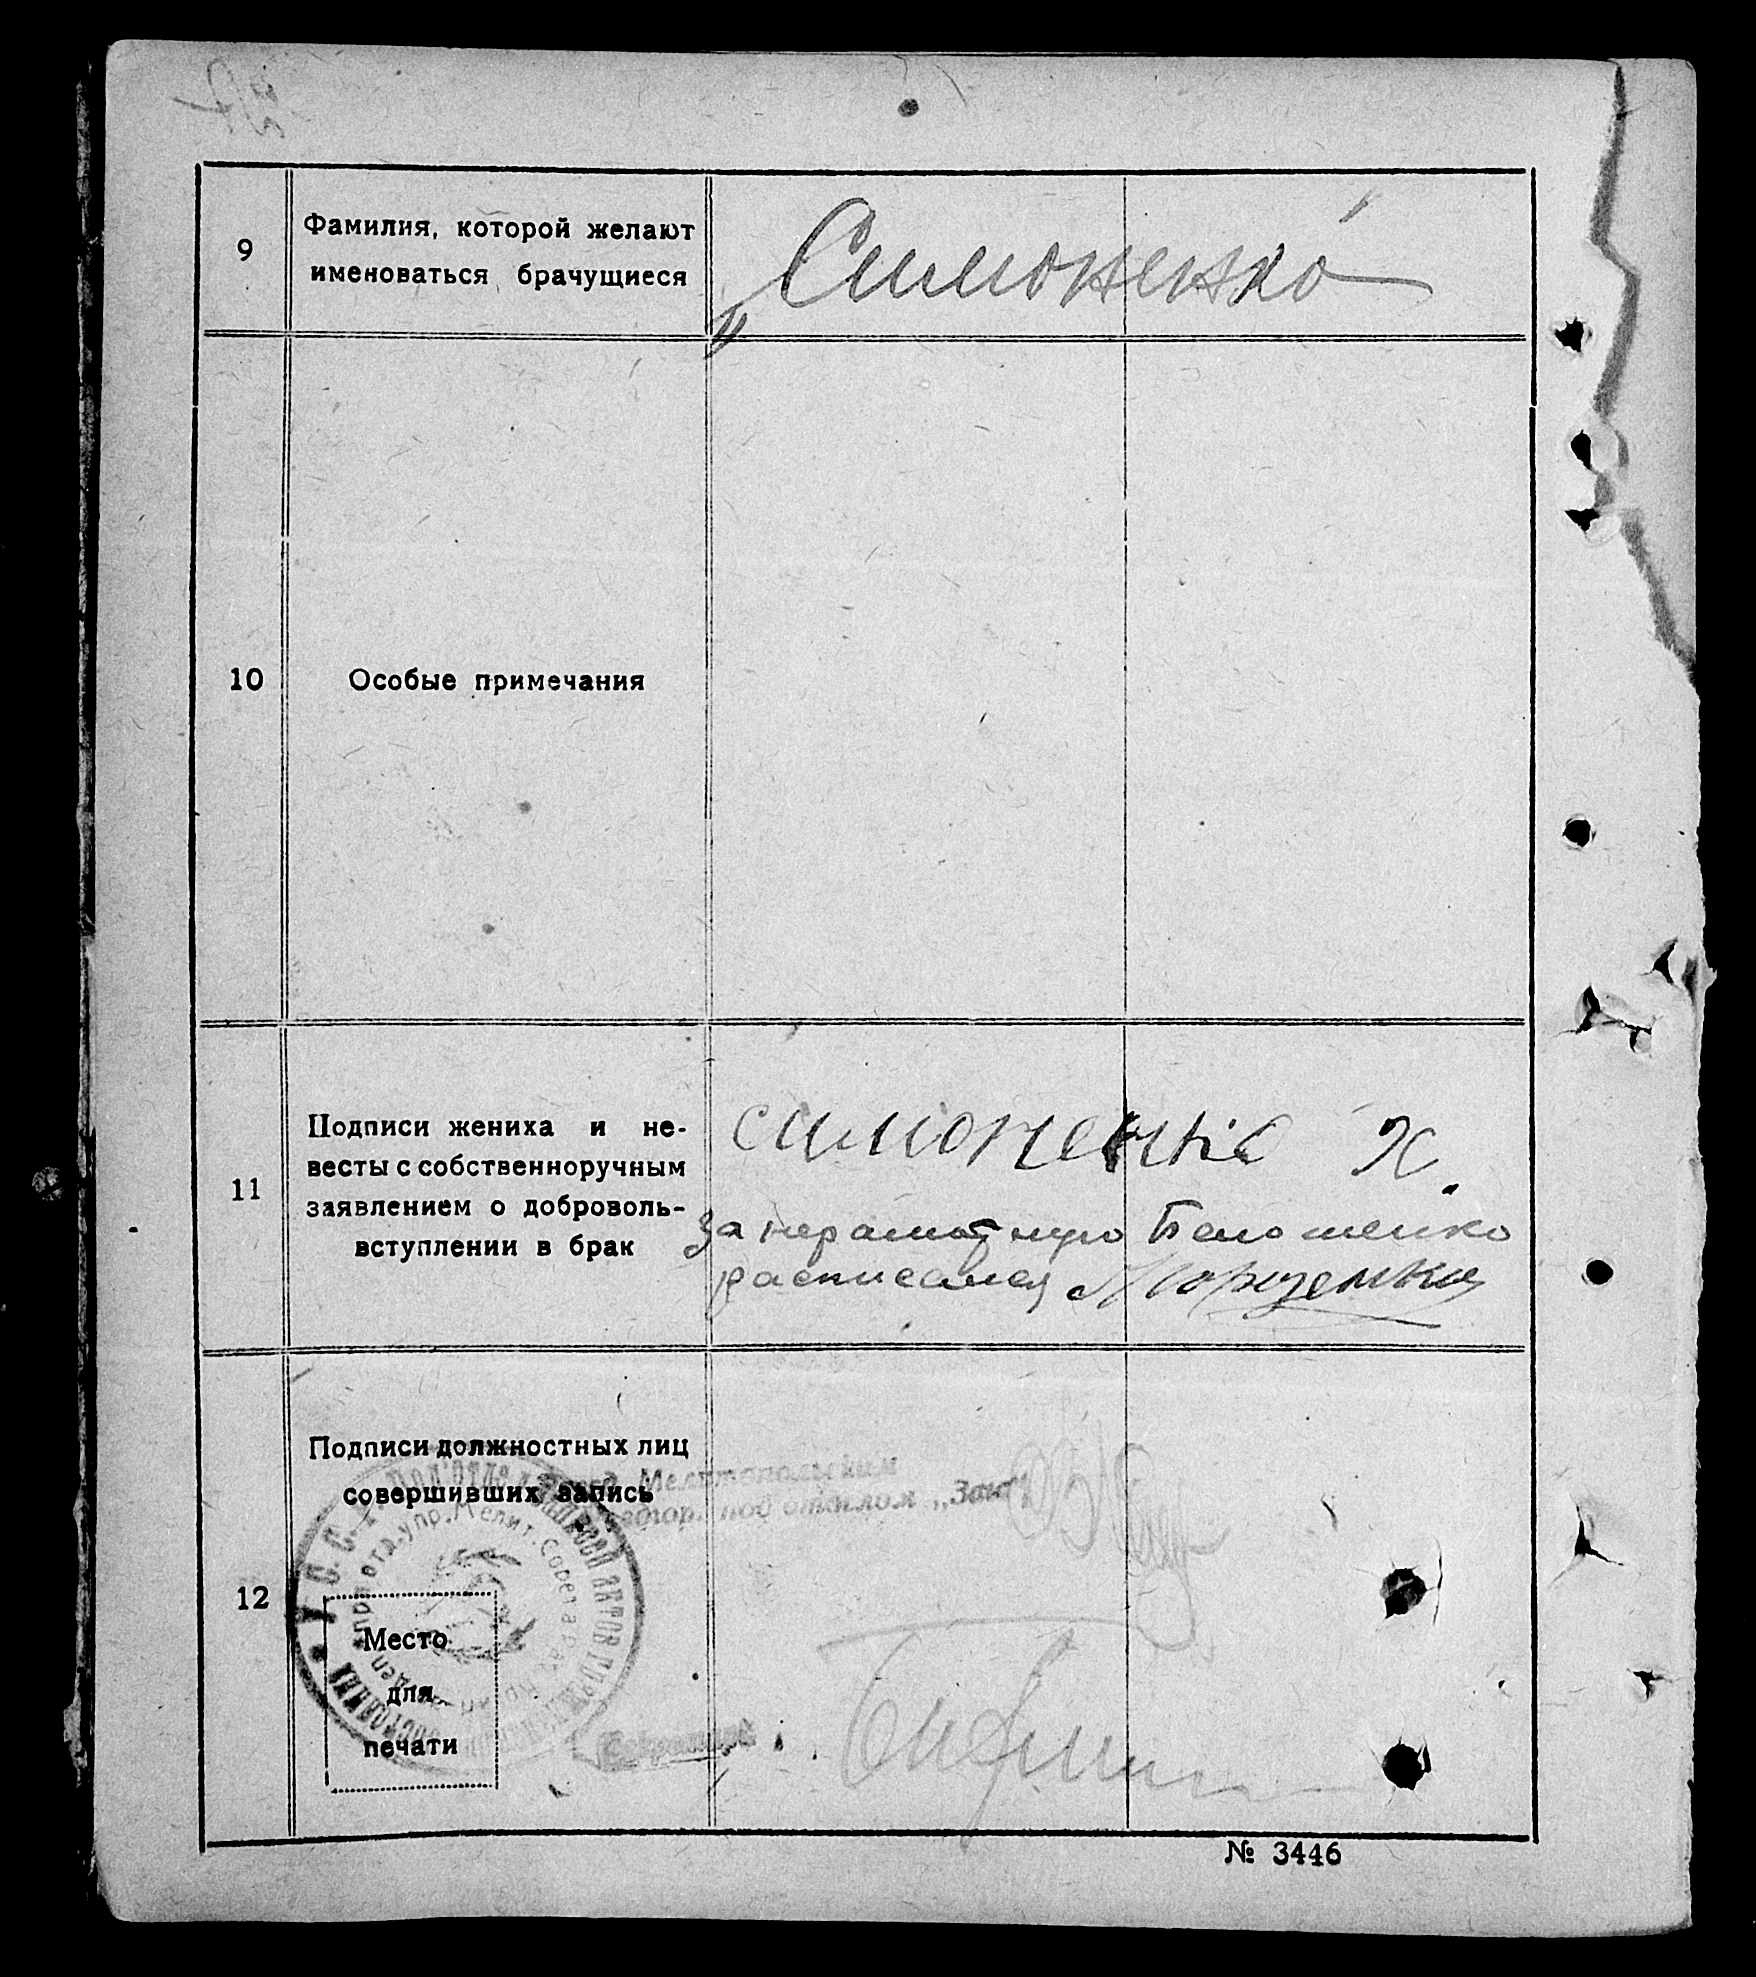 9
Фамилия, которой желают
именоваться брачущиеся
„Симоненко
10
Особые примечания
11
Подписи жениха и не-
весты с собственноручным
заявлением о доброволь-
вступлении в брак
симоненко Н.
За неграмотную
расписался
12
Подписи должностных лиц
совершивших запись
Мелитопольским
под отделом „Загс"
У.С.С.Р.
Место
для
печати
Секретарь
№ 3446